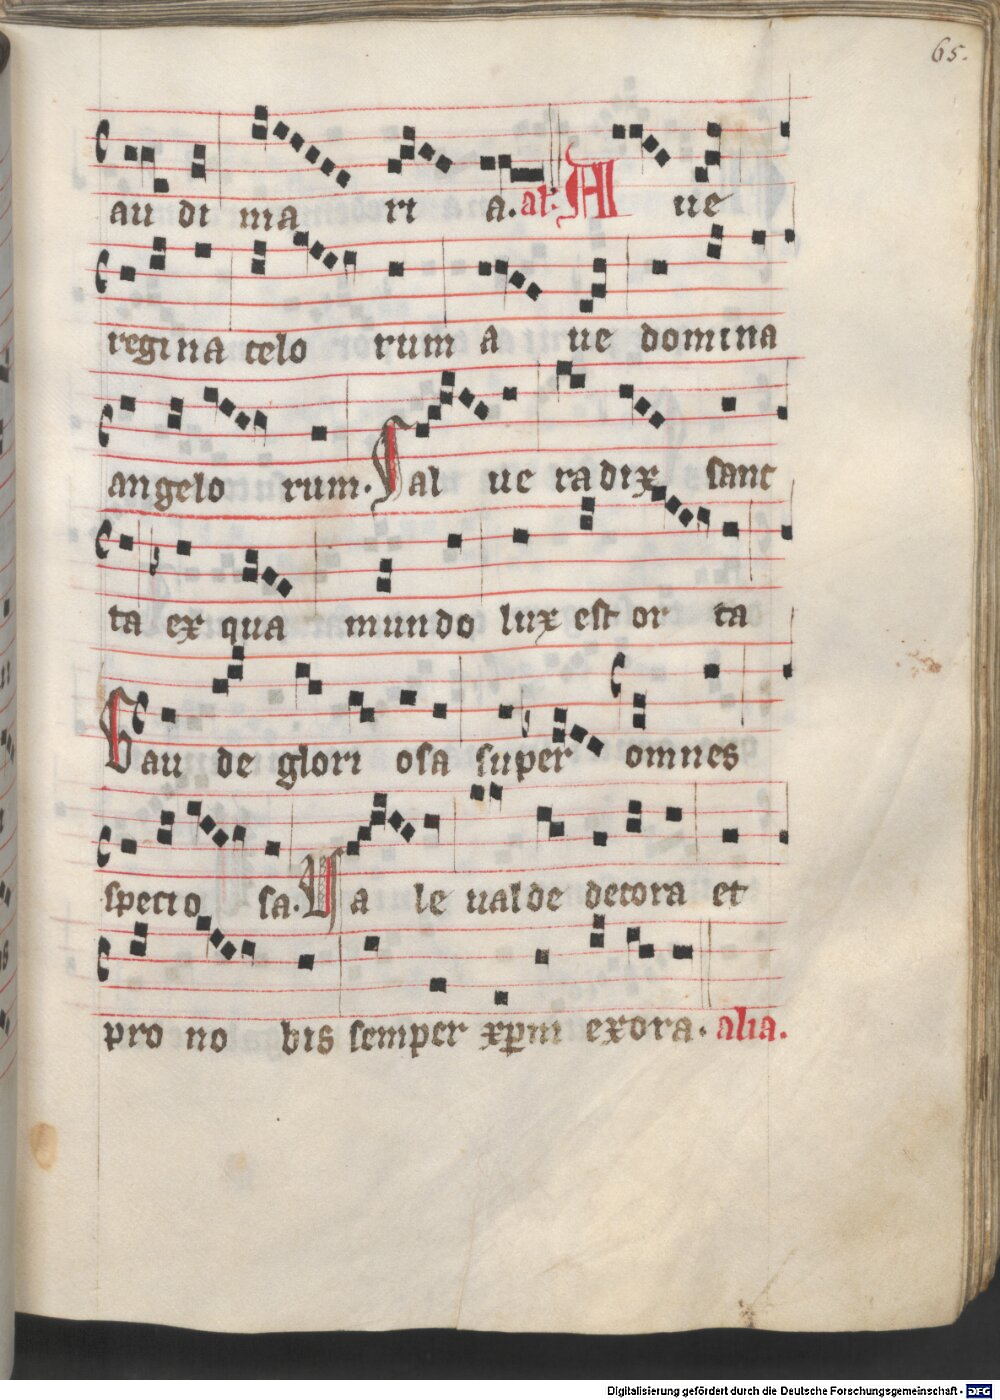 65.
au di ma ri a. al'. A ue
regina celo rum a ue domina
angelo rum. Sal ue radix sanc
ta ex qua mundo lux est or ta
Gau de glori osa super omnes
specio sa. Va le ualde decora et
pro no bis semper xpm exora. alia.
Digitalisierung gefördert durch die Deutsche Forschungsgemeinschaft - DFG